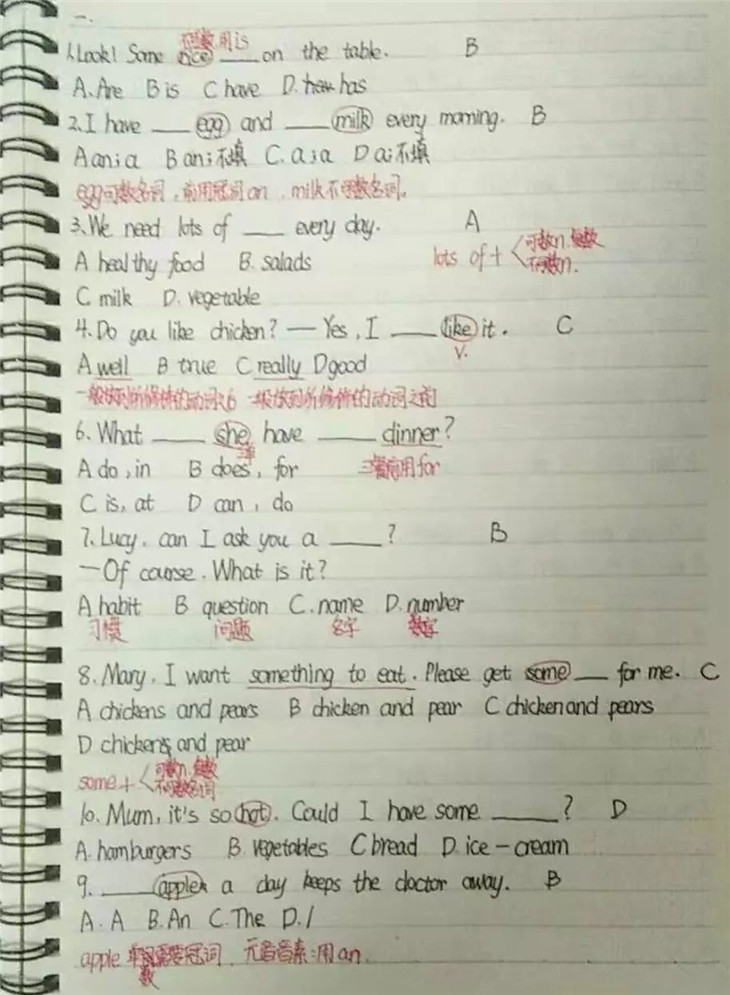 一.
不可数,用is
1.Look! Some rice ___ on the table. B
A.Are B is C have D. has
2.I have ___ egg and ___ milk every morning. B
A an;a B an;不填 C.a;a D a;不填
egg可数名词,前用冠词an, milk不可数名词。
3.We need lots of ___ every day. A
lots of+ 可数n.复数
不可数n.
A healthy food B. salads
C milk D. vegetable
4.Do you like chicken? — Yes, I ___ like it. C
v.
A well B true C really D good
一般放到所修饰的动词之后 一般放到所修饰的动词之前
6. What ___ she have ___ dinner?
三单
A do, in B does, for 三餐前用for
C is, at D can, do
7. Lucy, can I ask you a ___? B
—Of course. What is it?
A habit B question C.name D.number
习惯 问题 名字 数字
8.Mary, I want something to eat. Please get some ___ for me. C
A chickens and pears B chicken and pear C chicken and pears
D chickens and pear
some+ 可数n.复数
不可数名词
10.Mum, it's so hot. Could I have some ___? D
A.hamburgers B.vegetables C bread D.ice-cream
9. ___ apple a day keeps the doctor away. B
A.A B.An C.The D./
apple 单数需要冠词,元音音素:用an.